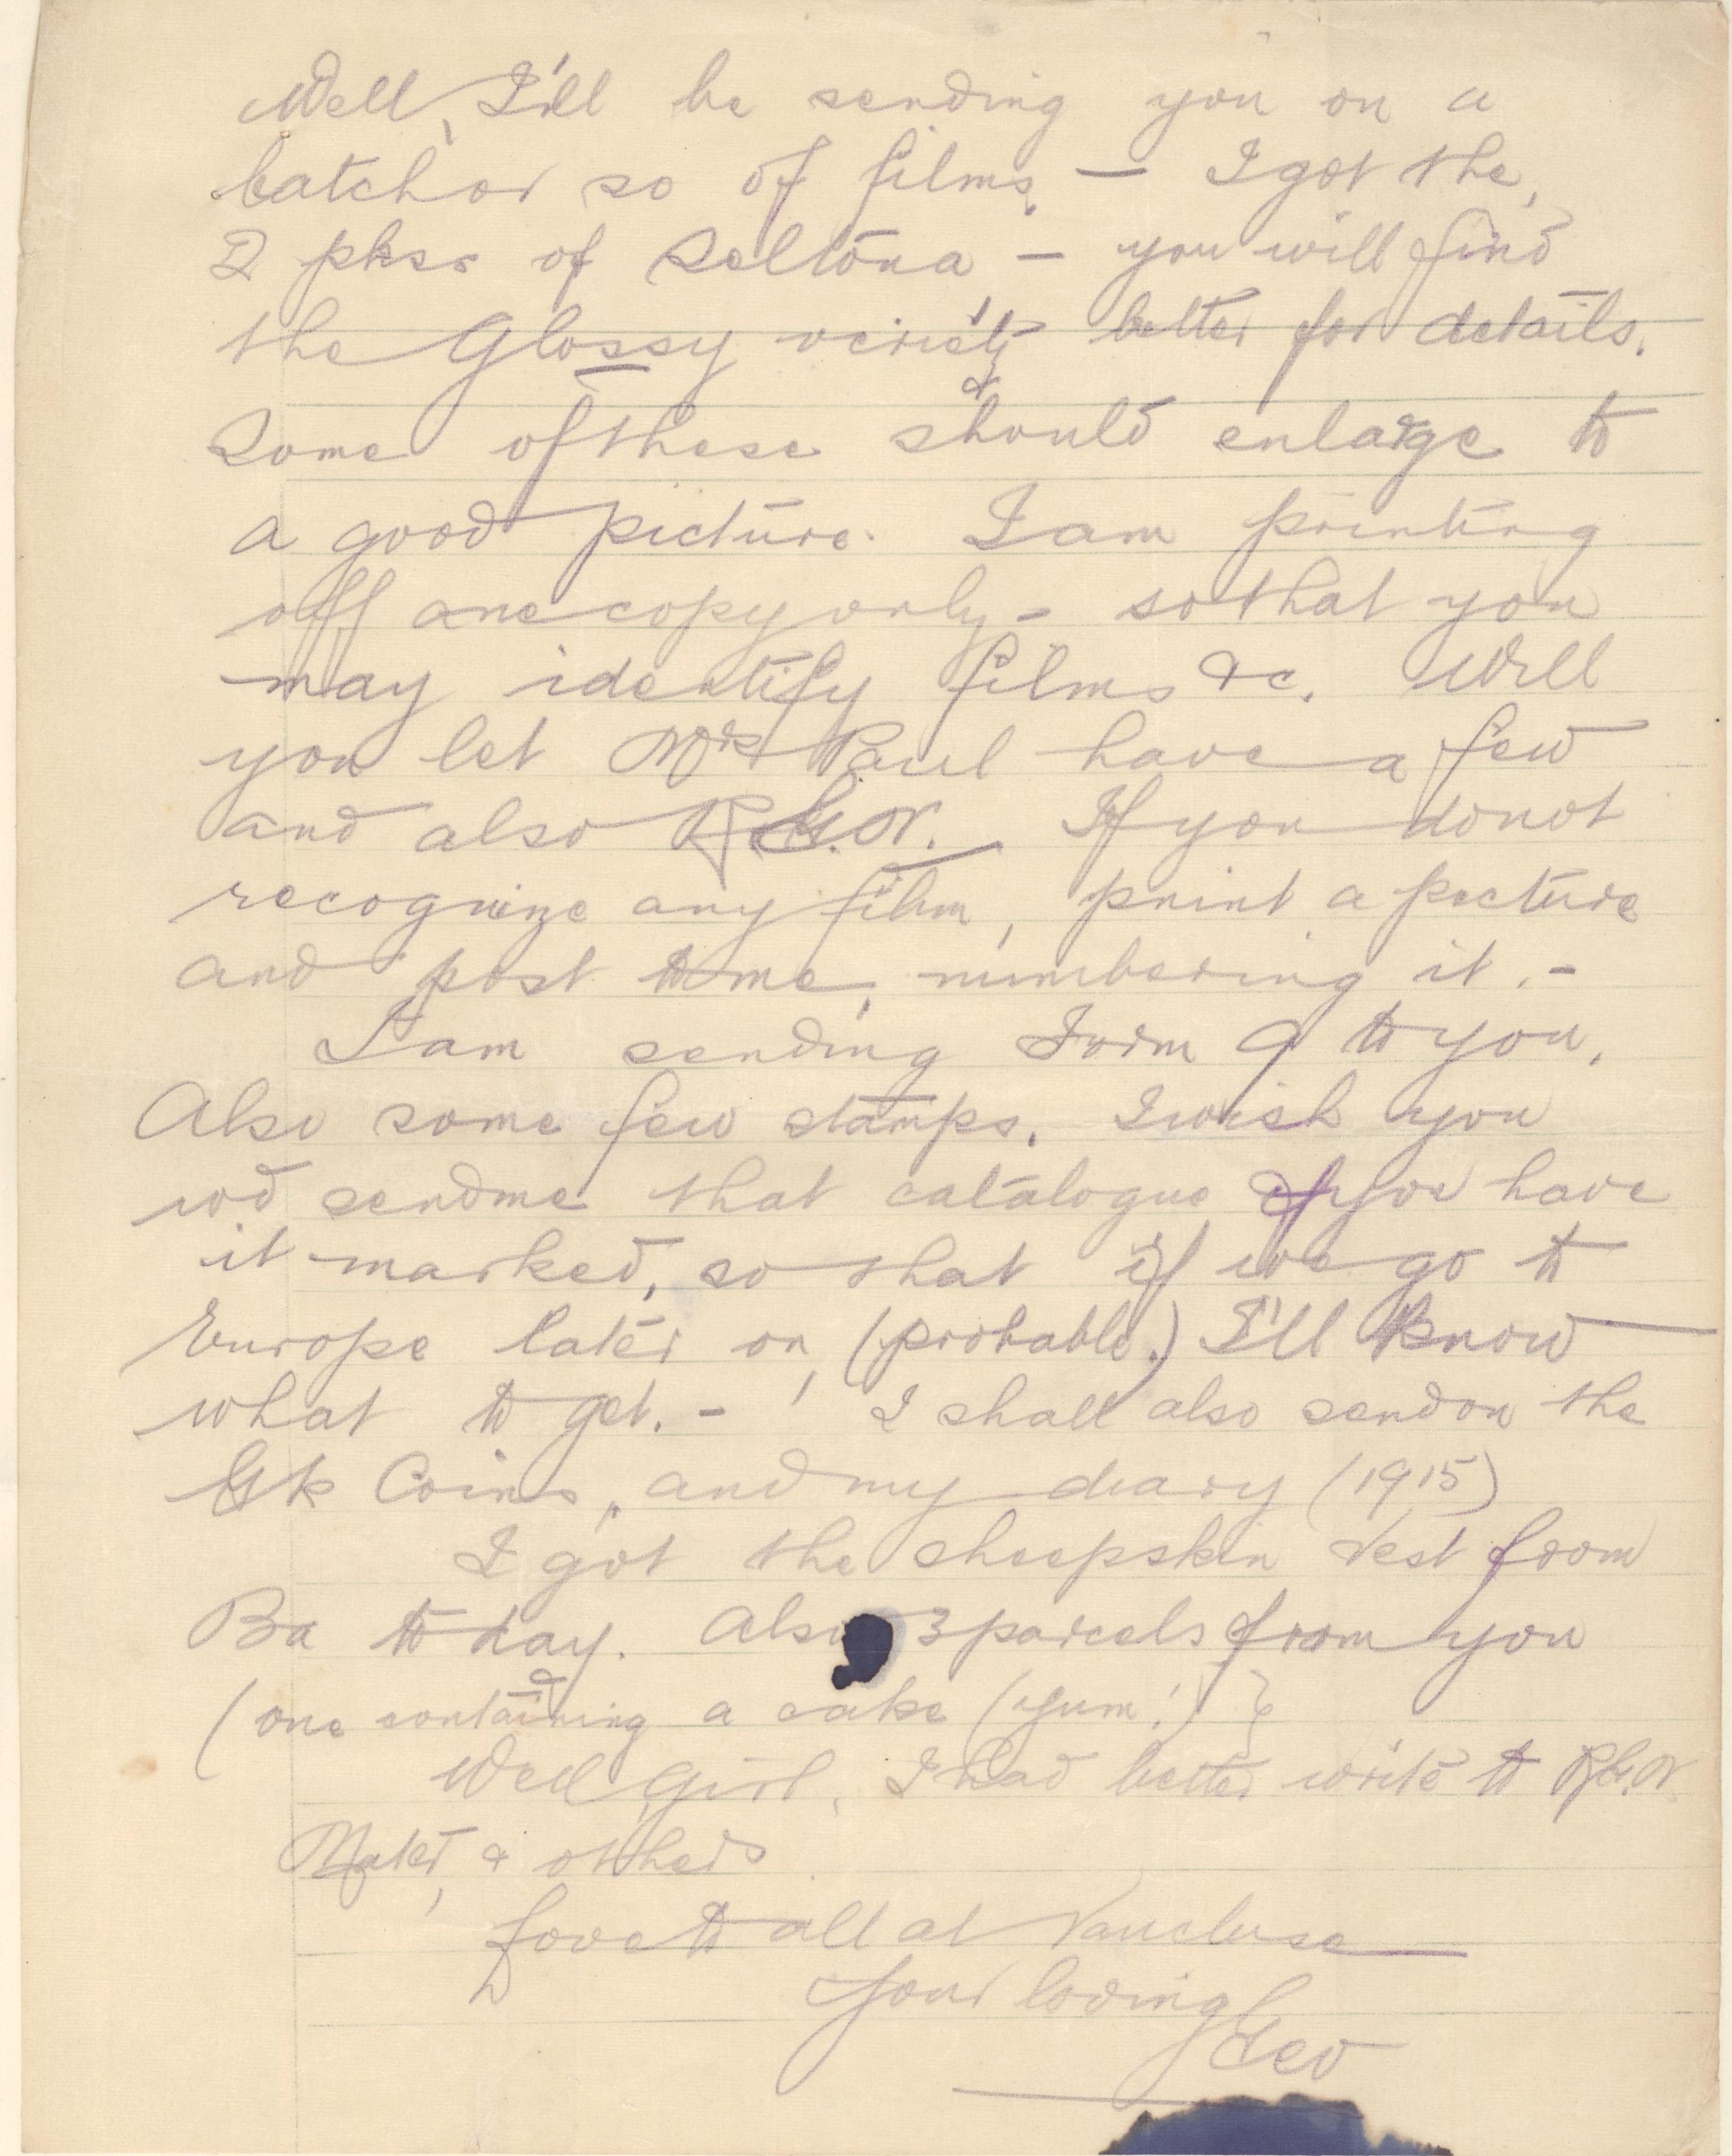 Well, I'll be sending you on a
batch or so of films, — I got the
2 pkgs of Seltona — you will find
the Glossy variety better for details.
Some of these should enlarge to
a good picture. I am printing
off one copy only - so that you
may identify films &c. Will
you let Mrs Paul have a few
and also R.G.N. If you do not
recognize any film, print a picture
and post to me, numbering it. -
I am sending Form 9 to you.
Also some few stamps. I wish you
wd send me that catalogue if you have
it marked, so that if we go to
Europe later on, (probable.) I'll know
what to get. - I shall also send on the
Gk Coins, and my diary (1915)
I got the sheepskin vest from
Ba to day. Also 3 parcels from you
(one containing a cake (yum!) }
Well Girl, I had better write to R.G.N.
Mater, & others
Love to all at Vaucluse
Your loving
Geo